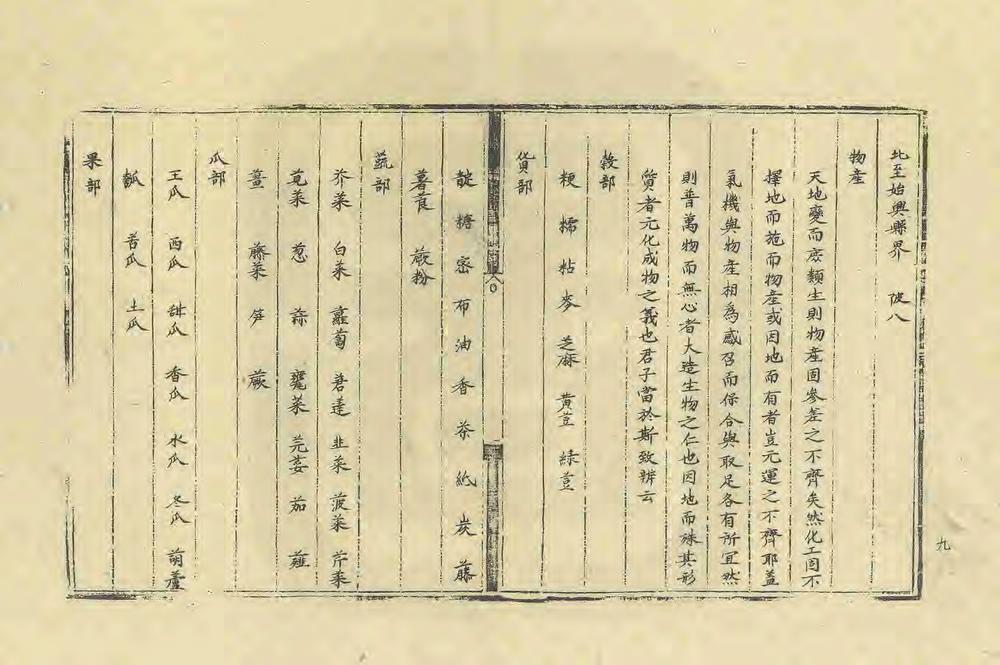 北至始興縣界 陂八
物產
天地變而庶類生則物產固參差之不齊矣然化工固不
擇地而施而物產或因地而有者豈元運之不齊耶蓋
氣機與物產相為感召而保合與取足各有所宜然
則普萬物而無心者大造生物之仁也因地而殊其形
質者元化成物之義也君子當於斯致辨云
穀部
粳 糯 粘 麥 芝蔴 黃荳 綠荳
貨部
靛 糖 密 布 油 香 茶 紙 炭 藤
薯莨 蕨粉
蔬部
芥菜 白菜 蘿蔔 莙薘 韭菜 菠菜 芹菜
莧菜 葱 蒜 蕹菜 芫荽 茄 薤
薑 藤菜 笋 蕨
瓜部
王瓜 西瓜 甜瓜 香瓜 水瓜 冬瓜 葫蘆
瓠 苦瓜 土瓜
果部
九